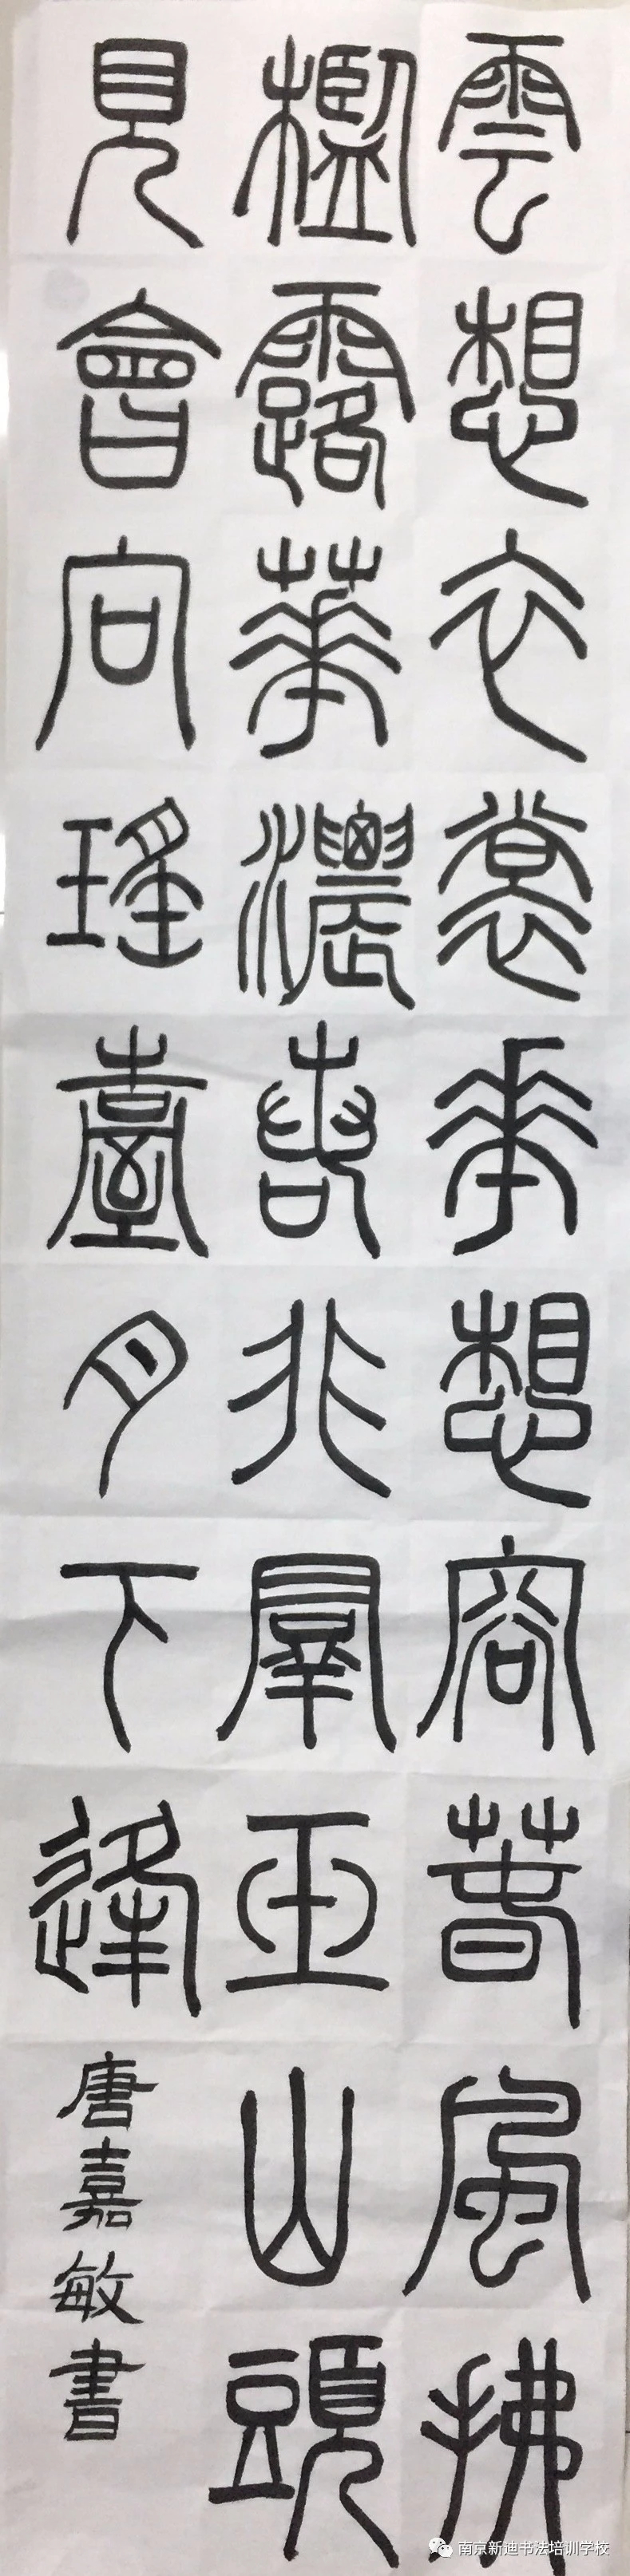 雲想衣裳華想容春風拂
檻露華濃若非羣玉山頭
見會向瑤臺月下逢
唐嘉敏書
南京新迪书法培训学校